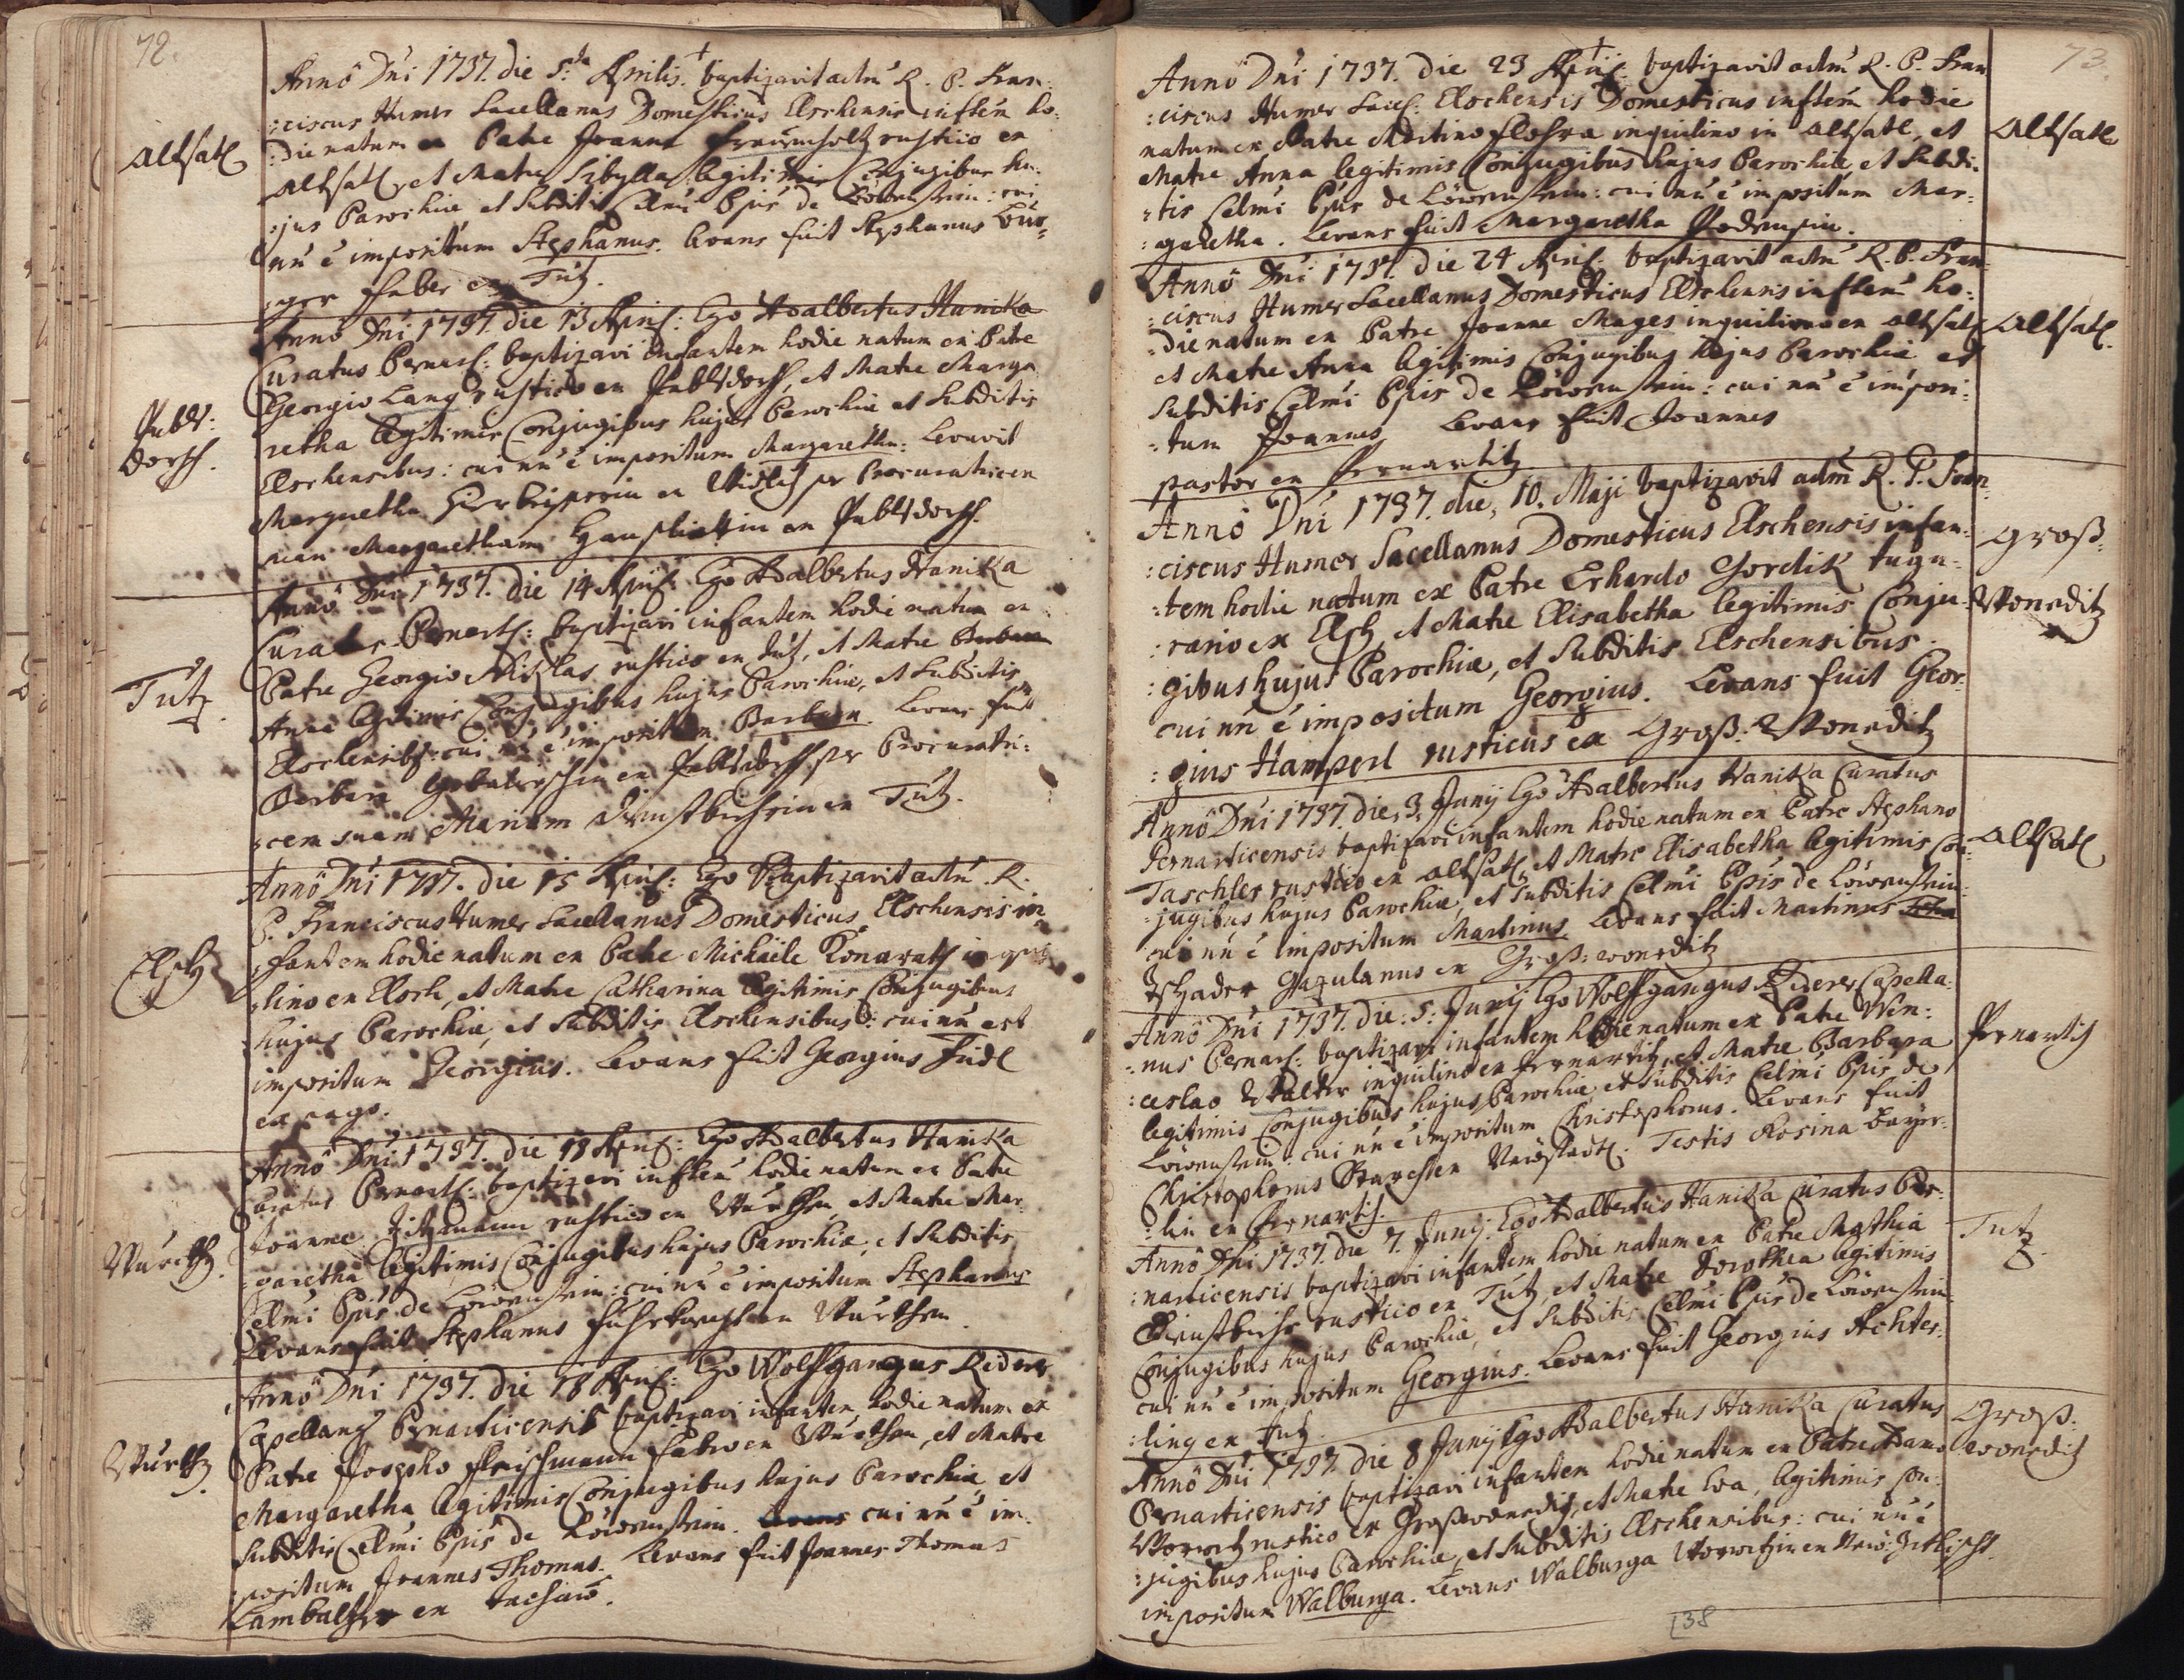 72.
Annô Dni 1737. die 5ta Aprilis. baptizavit adm̃ R. P. Fran:
:ciscus Humer Sacellanus Domesticus Elschensis inftem ho:
Altsatl
:die natum ex Patre Joanne rustico ex
Altsatl, et Matre Sibylla legitimis Conjugibus hu:
:jus Parochiæ et Subditis Celmi Ppis de Löwenstein: cui
nn̄ ē impositum Stephanus. Levans fuit Stephanus
Faber ex Tutz.
Annô Dni 1737. die 13 April: Ego Adalbertus Hanika
Curatus Pernart: baptizavi Infantem hodie natum ex Patre
Georgio Lang rustico ex Pabelsdorff, et Matre Marga
Pabls:
dorff.
retha legitimis Conjugibus hujus Parochiæ et Subditis
Elschensibus: cui nn̄ ē impositum Margaretha. Levavit
Margaretha ex per Procuratricem
suam Margaretham ex Pablsdorff.
Annô Dni 1737. die 14 April: Ego Adalbertus Hanika
Curatus Pernart: baptizavi infantem hodie natum ex
Patre Georgio rustico ex Tutz, et Matre Barbara
Tutz.
Anna legitimis Conjugibus hujus Parochiæ, et Subditis
Elschensib9: cui nn̄ ē impositum Barbara. Levans fuit
Barbara ex Pablsdorff per Procuratri:
:cem suam Mariam ex Tutz.
Annô Dni 1737. die 15 April: Ego Baptizavit adm̃ R.
P. Franciscus Humer Sacellanus Domesticus Elschensis in
Elsch
:fantem hodie natum ex Patre Michaële Konarath inqui
:lino ex Elsch, et Matre Catharina legitimis Conjugibus
hujus Parochiæ, et Subditis Elschensibus: cui nn̄ est
impositum Georgius. Levans fuit Georgius
ex pago.
Annô Dni 1737. die 18 April: Ego Adalbertus Hanika
Curatus Pernart: baptizavi inftem hodie natum ex Patre
Joanne Zitzmann rustico ex Wurthen, et Matre Mar:
Wurth.
:garetha legitimis Conjugibus hujus Parochiæ, et Subditis
Celmi Ppis de Löwenstein: cui nn̄ ē impositum Stephanus
Levans fuit Stephanus ex Wurthen.
Annô Dni 1737. die 18 April: Ego Wolffgangus Riderer
Capellanus Pernarticensis baptizavi infantem hodie natum ex
Patre Josepho Fleischmann Fabro ex Wurthen, et Matre
Wurth.
Margaretha legitimis Conjugibus hujus Parochiæ et
Subditis Celmi Ppis de Löwenstein. Levans cui nn̄ ē im:
:positum Joannes Thomas. Levans fuit Joannes Thomas
ex
73.
Annô Dni 1737. Die 23 April: baptizavit adm̃ R. P. Fran
:ciscus Humer Sacel: Elschensis Domesticus inftem hodie
Altsatl
natum ex Patre Martino inquilino in Altsatl, et
Matre Anna legitimis Conjugibus hujus Parochiæ et Subdi:
:tis Celmi Ppis de Löwenstein: cui nn̄ ē impositum Mar:
:garetha. Levans fuit Margaretha
Annô Dni 1737. Die 24 April: baptizavit adm̃ R. P. Fran
:ciscus Humer Sacellanus Domesticus Elschensis inftem ho:
Altsatl.
:die natum ex Patre Joanne Mages inquilino ex Altsatl
et Matre Anna legitimis Conjugibus hujus Parochiæ et
Subditis Celmi Ppis de Löwenstein: cui nn̄ ē imposi:
:tum Joannes. Levans fuit Joannes
pastor ex Pernartitz.
Annô Dni 1737. die, 10. Maji baptizavit adm̃ R. P. Fran
:ciscus Humer Sacellanus Domesticus Elschensis infan:
Groß:
:tem hodie natum ex Patre Erhardo Gordik tugu:
Woneditz
:rario ex Elsch, et Matre Elisabetha legitimis Conju:
:gibus hujus Parochiæ, et Subditis Elschensibus.
cui nn̄ ē impositum Georgius. Levans fuit Geor:
:gius Hamperl rusticus ex Groß: Woneditz
Annô Dni 1737. die, 3, Junij Ego Adalbertus Hanika Curatus
Pernarticensis baptizavi infantem hodie natum ex Patre Stephano
Altsatl
Taschler rustico ex Altsatl, et Matre Elisabetha legitimis Con:
:jugibus hujus Parochiæ, et Subditis Celmi Ppis de Löwenstein:
cui nn̄ ē impositum Martinus. Levans fuit Martinus
ex Groß: woneditz
Annô Dni 1737. die: 5: Junij Ego Wolffgangus Riderer Capella:
:nus Pernart: baptizavi infantem hodie natum ex Patre Wen:
Pernartitz
:ceslao Walter inquilino ex Pernartitz, et Matre Barbara
legitimis Conjugibus hujus Parochiæ et Subditis Celmi Ppis de
Löwenstein: cui nn̄ ē impositum Christophorus. Levans fuit
Christophorus Testis Rosina
ex Pernartitz.
Annô Dni 1737. die 7. Junij. Ego Adalbertus Hanika Curatus Per:
:narticensis baptizavi infantem hodie natum ex Patre Mathia
Tutz
rustico ex Tutz, et Matre Dorothea legitimis
Conjugibus hujus Parochiæ, et Subditis Celmi Ppis de Löwenstein:
cui nn̄ ē impositum Georgius. Levans fuit Georgius Achter:
:ling ex Tutz.
Annô Dni 1737. die 8 Junij Ego Adalbertus Hanika Curatus
Groß:
woneditz
Pernarticensis baptizavi infantem hodie natum ex Patre Adamo
rustico ex Großwoneditz, et Matre Eva, legitimis Con:
:jugibus hujus Parochiæ, et Subditis Elschensibus: cui nn̄ ē
impositum Walburga. Levans Walburga ex
138